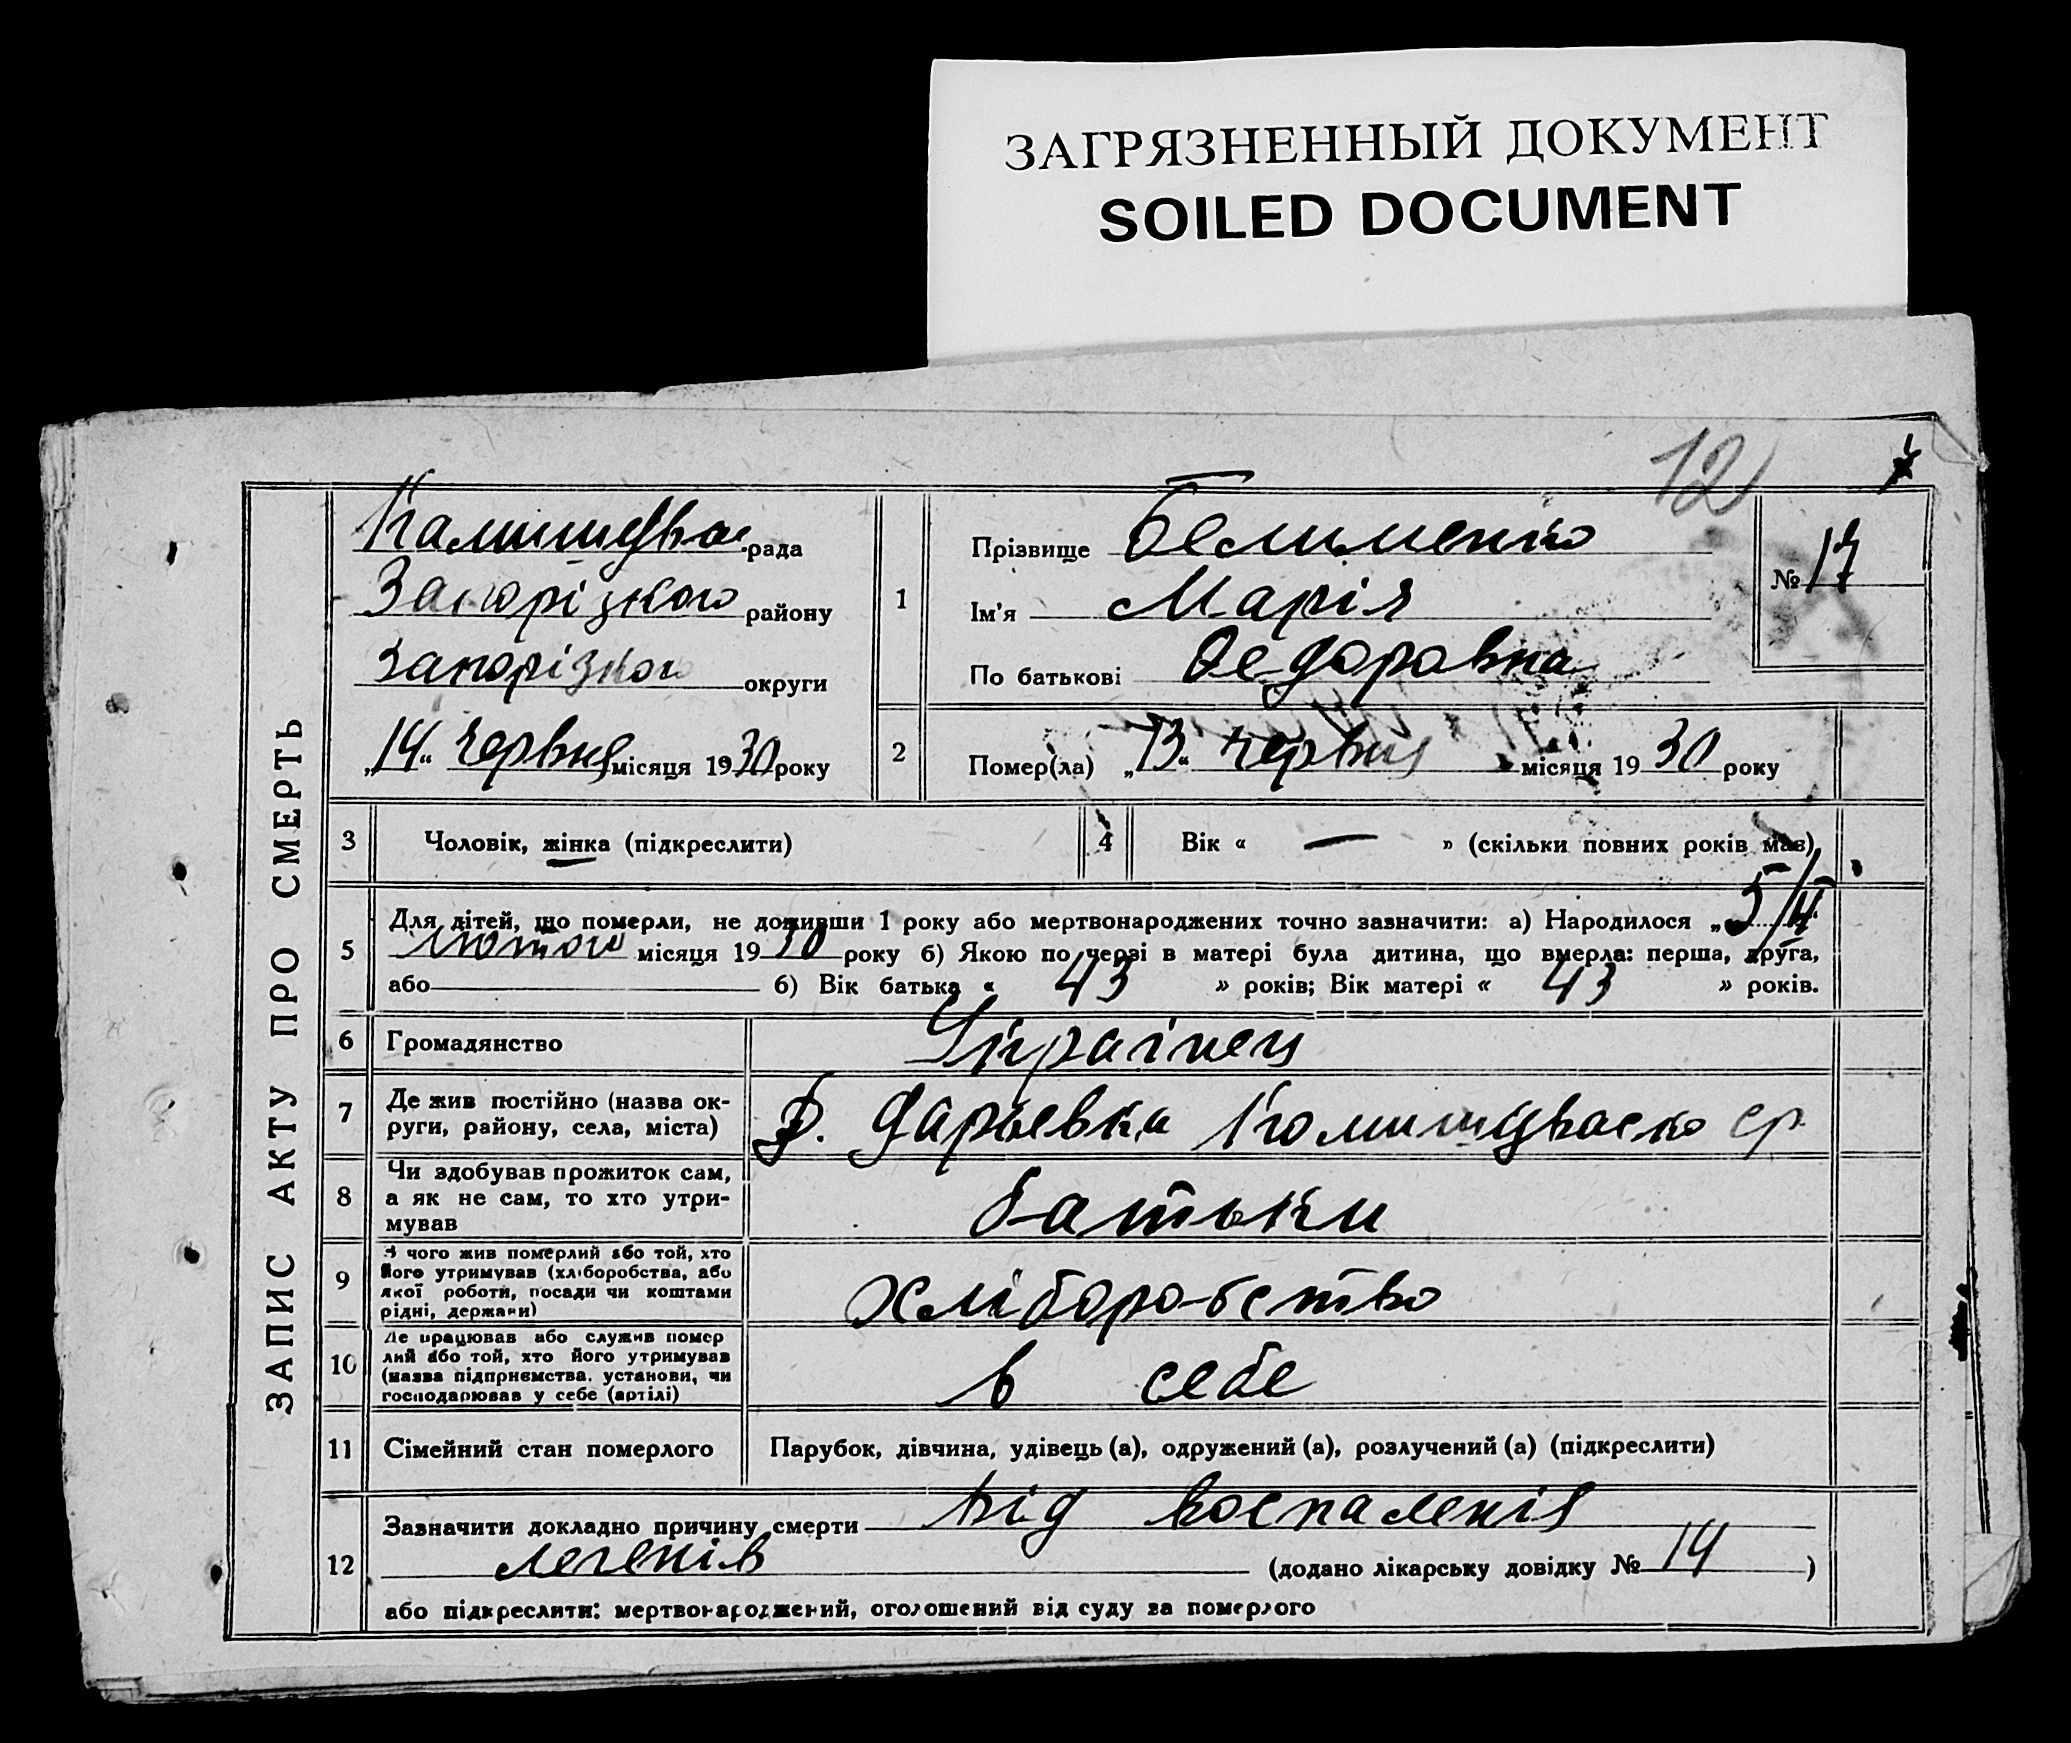 ЗАГРЯЗНЕННЫЙ ДОКУМЕНТ
SOILED DOCUMENT
12
ЗАПИС АКТУ ПРО СМЕРТЬ
рада
Запорізкого району
Запорізкого округи
„14“ червня місяця 1930 року
1
Прізвище
Ім'я Марія
По батькові Федоровна
№ 17
2
Помер(ла) „13“ червня місяця 1930 року
3 Чоловік, жінка (підкреслити)
4 Вік « — » (скільки повних років має)
5 Для дітей, що померли, не доживши 1 року або мертвонароджених точно зазначити: а) Народилося „5/II
лютого місяця 1930 року б) Якою по черзі в матері була дитина, що вмерла: перша, друга,
або б) Вік батька « 43 » років; Вік матері « 43 » років.
6 Громадянство Українец
7 Де жив постійно (назва округи, району, села, міста) Дарьевка
8 Чи здобував прожиток сам,
а як не сам, то хто утри-
мував батьки
9 З чого жив померлий або той, хто
його утримував (хліборобства, або
якої роботи, посади чи коштами
рідні, держави) хліборобство
10 Де працював або служив помер
лий або той, хто його утримував
(назва підприємства, установи, чи
господарював у себе (артілі) в себе
11 Сімейний стан померлого Парубок, дівчина, удівець (а), одружений (а), розлучений (а) (підкреслити)
12 Зазначити докладно причину смерти від воспаления
легенів (додано лікарську довідку № 14 )
або підкреслити: мертвонароджений, оголошений від суду за померлого